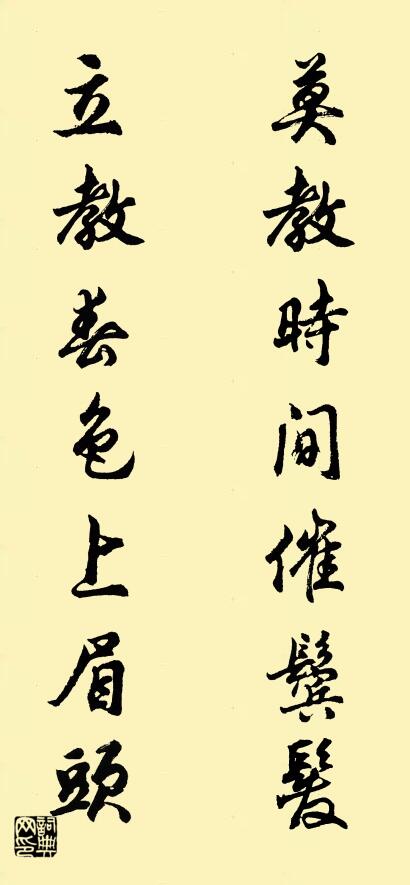 莫教時間催鬓髮
立教春色上眉頭
詞典网印